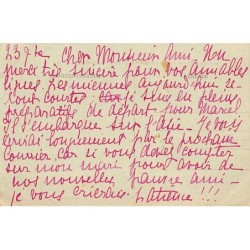 23 9bre Cher Monsieur Ami. Mon
merci très sincère pour vos aimables
lignes. Les miennes aujourd'hui se-
ront courtes car je suis en pleins
préparatifs de départ, pour Marcel
s'embarque sur l'Asie. Je vous
écrirai longuement par le prochain
courrier. Car si vous deviez compter
sur mon mari pour avoir de
nos nouvelles, pauvre ami
je vous crierais : patience !!!